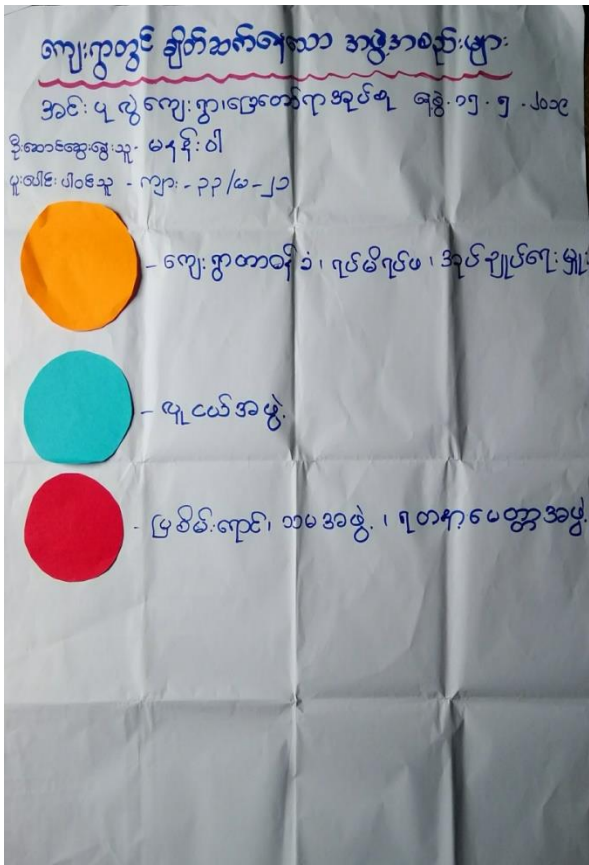 ကျေးရွာတွင် ချိတ်ဆက်နေသော အဖွဲ့အစည်းများ
အင်းပုလွဲကျေးရွာ၊ မြေတော်ရာအုပ်စု ရနေ့ ၁၅.၅.၂၀၁၉
ဦးဆောင်ဆွေးနွေးသူ- မနန်းဝါ
ပူးပေါင်းပါဝင်သူ - ကျား - ၃၃/မ-၂၁
- ကျေးရွာတာဝန်ခံ၊ ရပ်မိရပ်ဖ၊ အုပ်ချုပ်ရေးမှူး
- လူငယ်အဖွဲ့
- မြစိမ်းရောင်၊ သမအဖွဲ့၊ ရတနာမေတ္တာအဖွဲ့